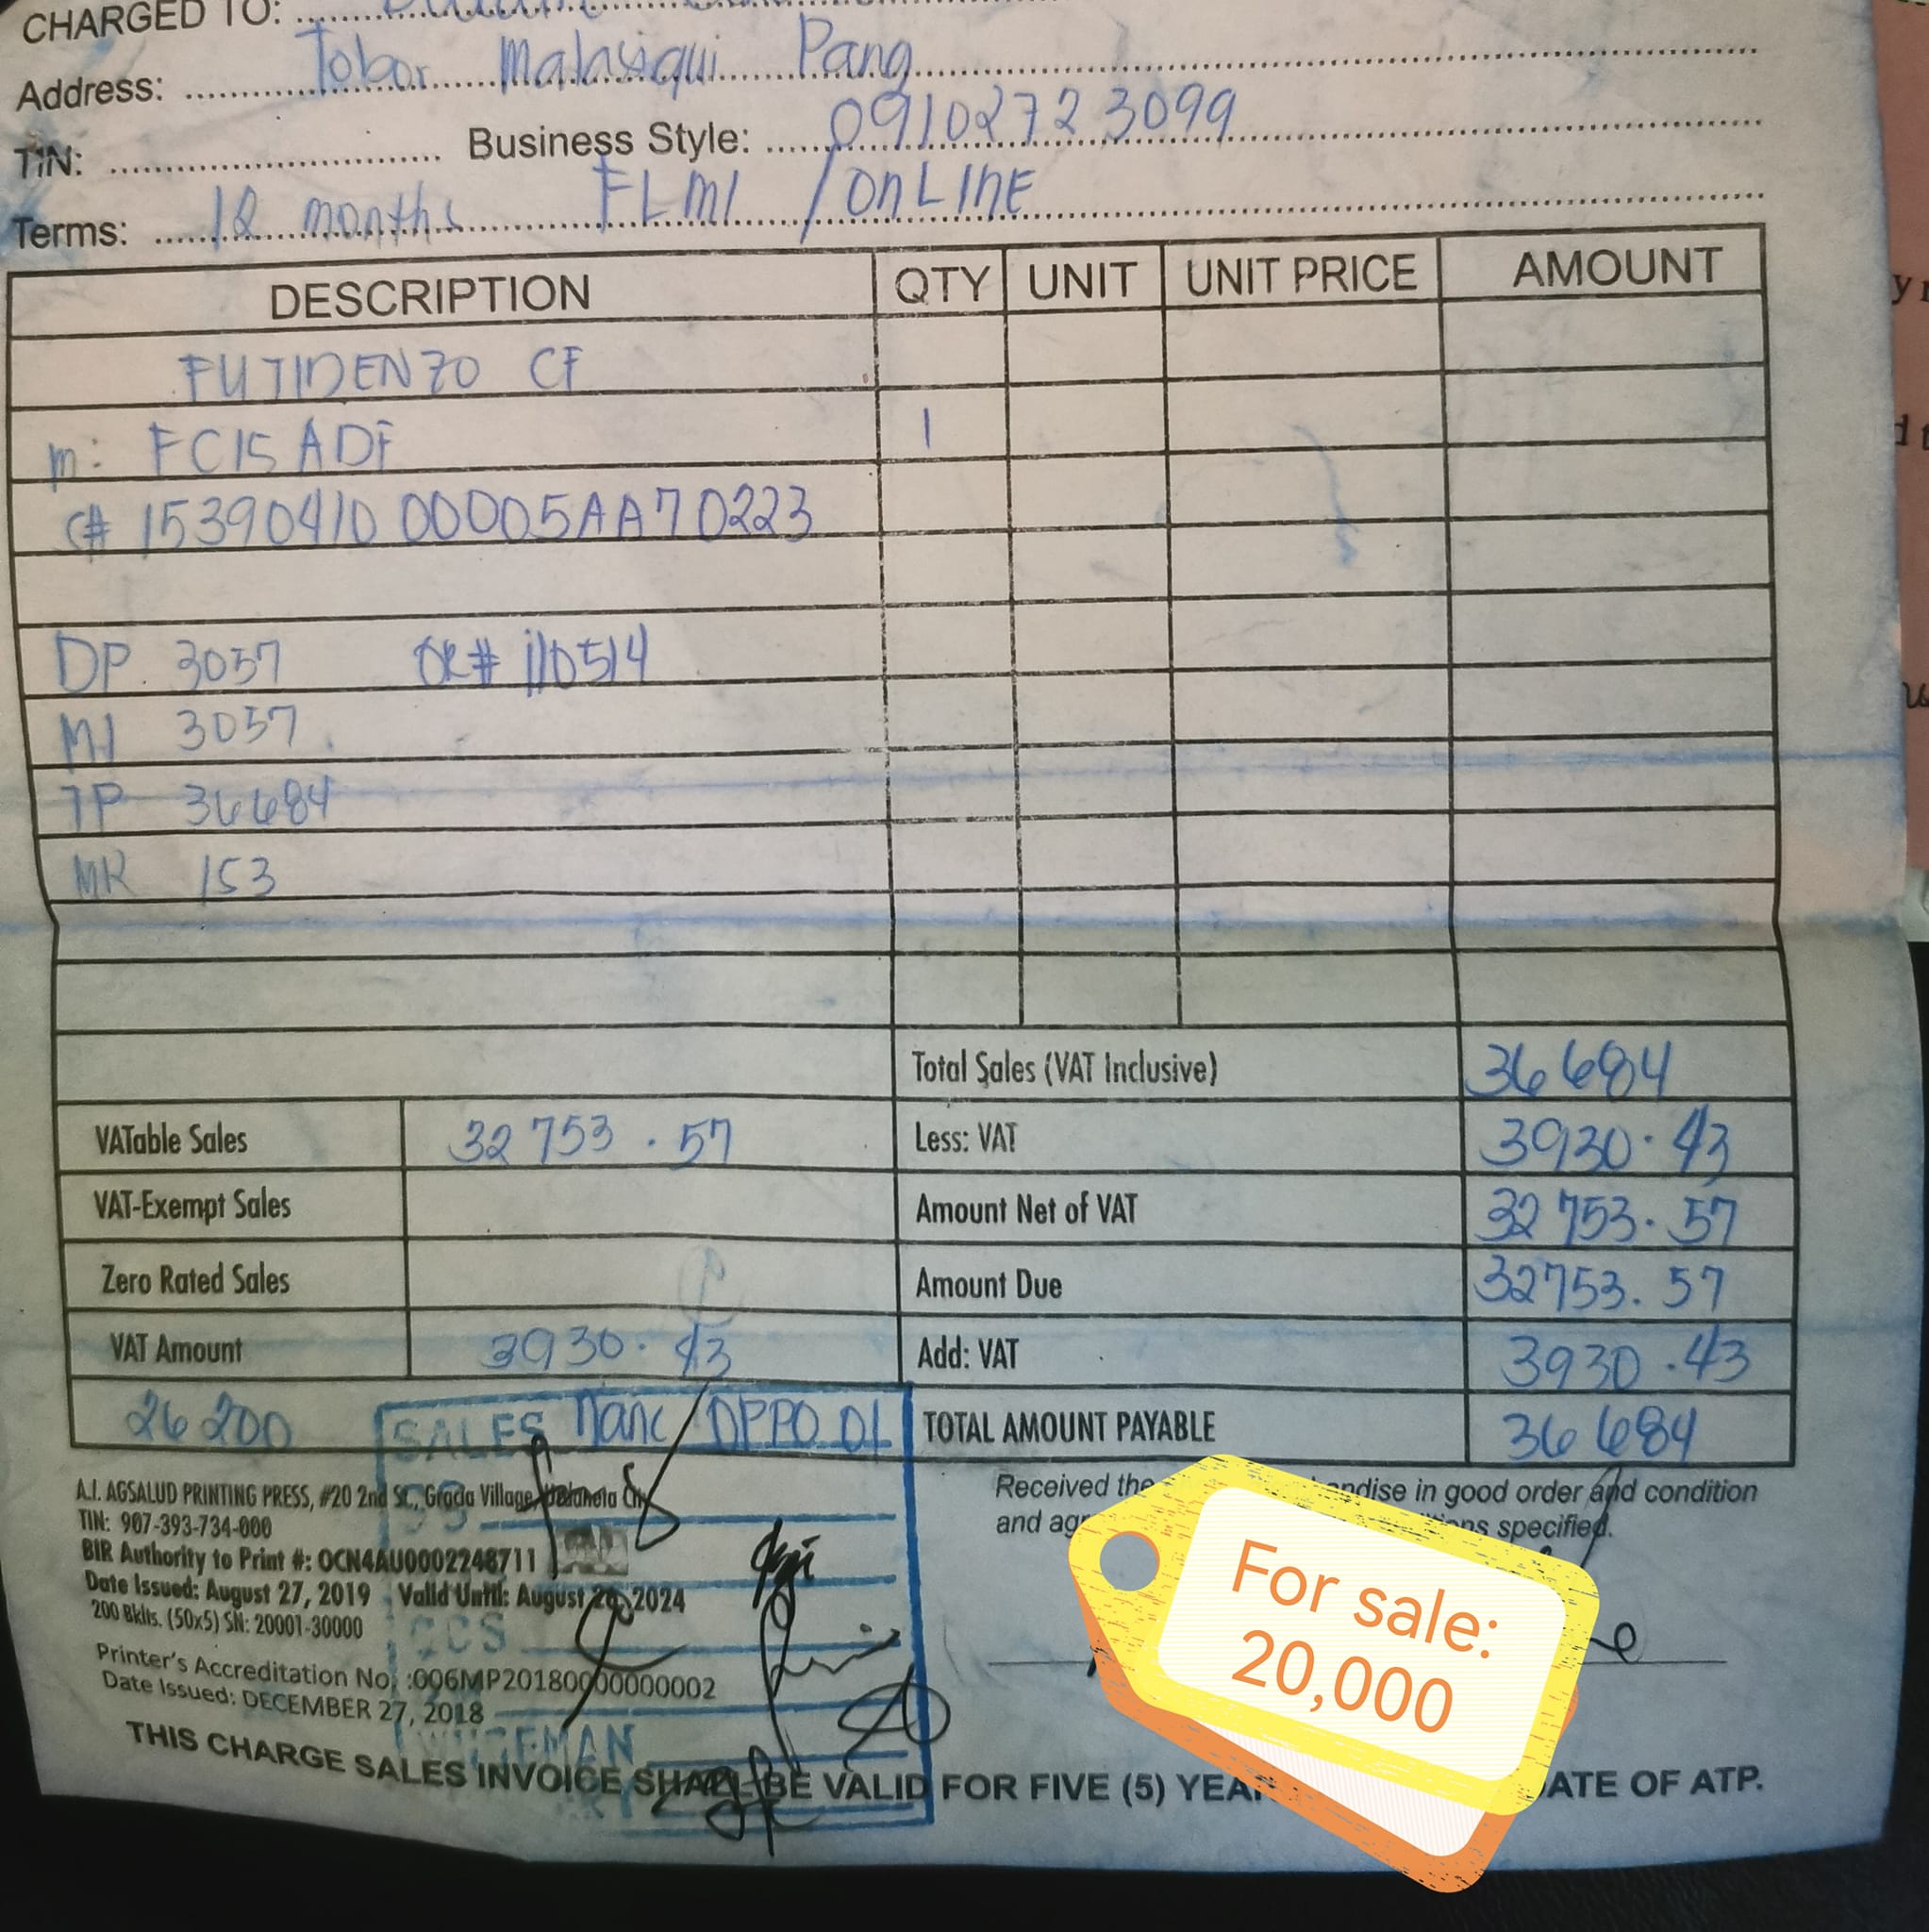 CHARGED TO:
Address: Tobor Malasiqui Pang
TIN: Business Style: 09102723099
Terms: 12 months FLM1 / OnLINE
DESCRIPTION QTY UNIT UNIT PRICE AMOUNT
FUJIDENZO CF
m: FC15ADF 1
C# 15390410 00005AA70223
DP 3057 OR# 110514
MI 3057
TP 36684
MR 153
Total Sales (VAT Inclusive) 36684
VATable Sales 32753.57 Less: VAT 3930.43
VAT-Exempt Sales Amount Net of VAT 32753.57
Zero Rated Sales Amount Due 32753.57
VAT Amount 3930.43 Add: VAT 3930.43
26200 SALES Nanc / DPPO 01 TOTAL AMOUNT PAYABLE 36684
A.I. AGSALUD PRINTING PRESS, #20 2nd St., Gracia Village, Urdaneta City
TIN: 907-393-734-000
BIR Authority to Print #: OCN4AU0002248711
Date Issued: August 27, 2019 Valid Until: August 26, 2024
200 Bklts. (50x5) SN: 20001-30000
CCS
Printer's Accreditation No. :006MP20180000000002
Date Issued: DECEMBER 27, 2018
Received the ndise in good order and condition
and ag ns specified.
THIS CHARGE SALES INVOICE SHALL BE VALID FOR FIVE (5) YEAR ATE OF ATP.
For sale:
20,000